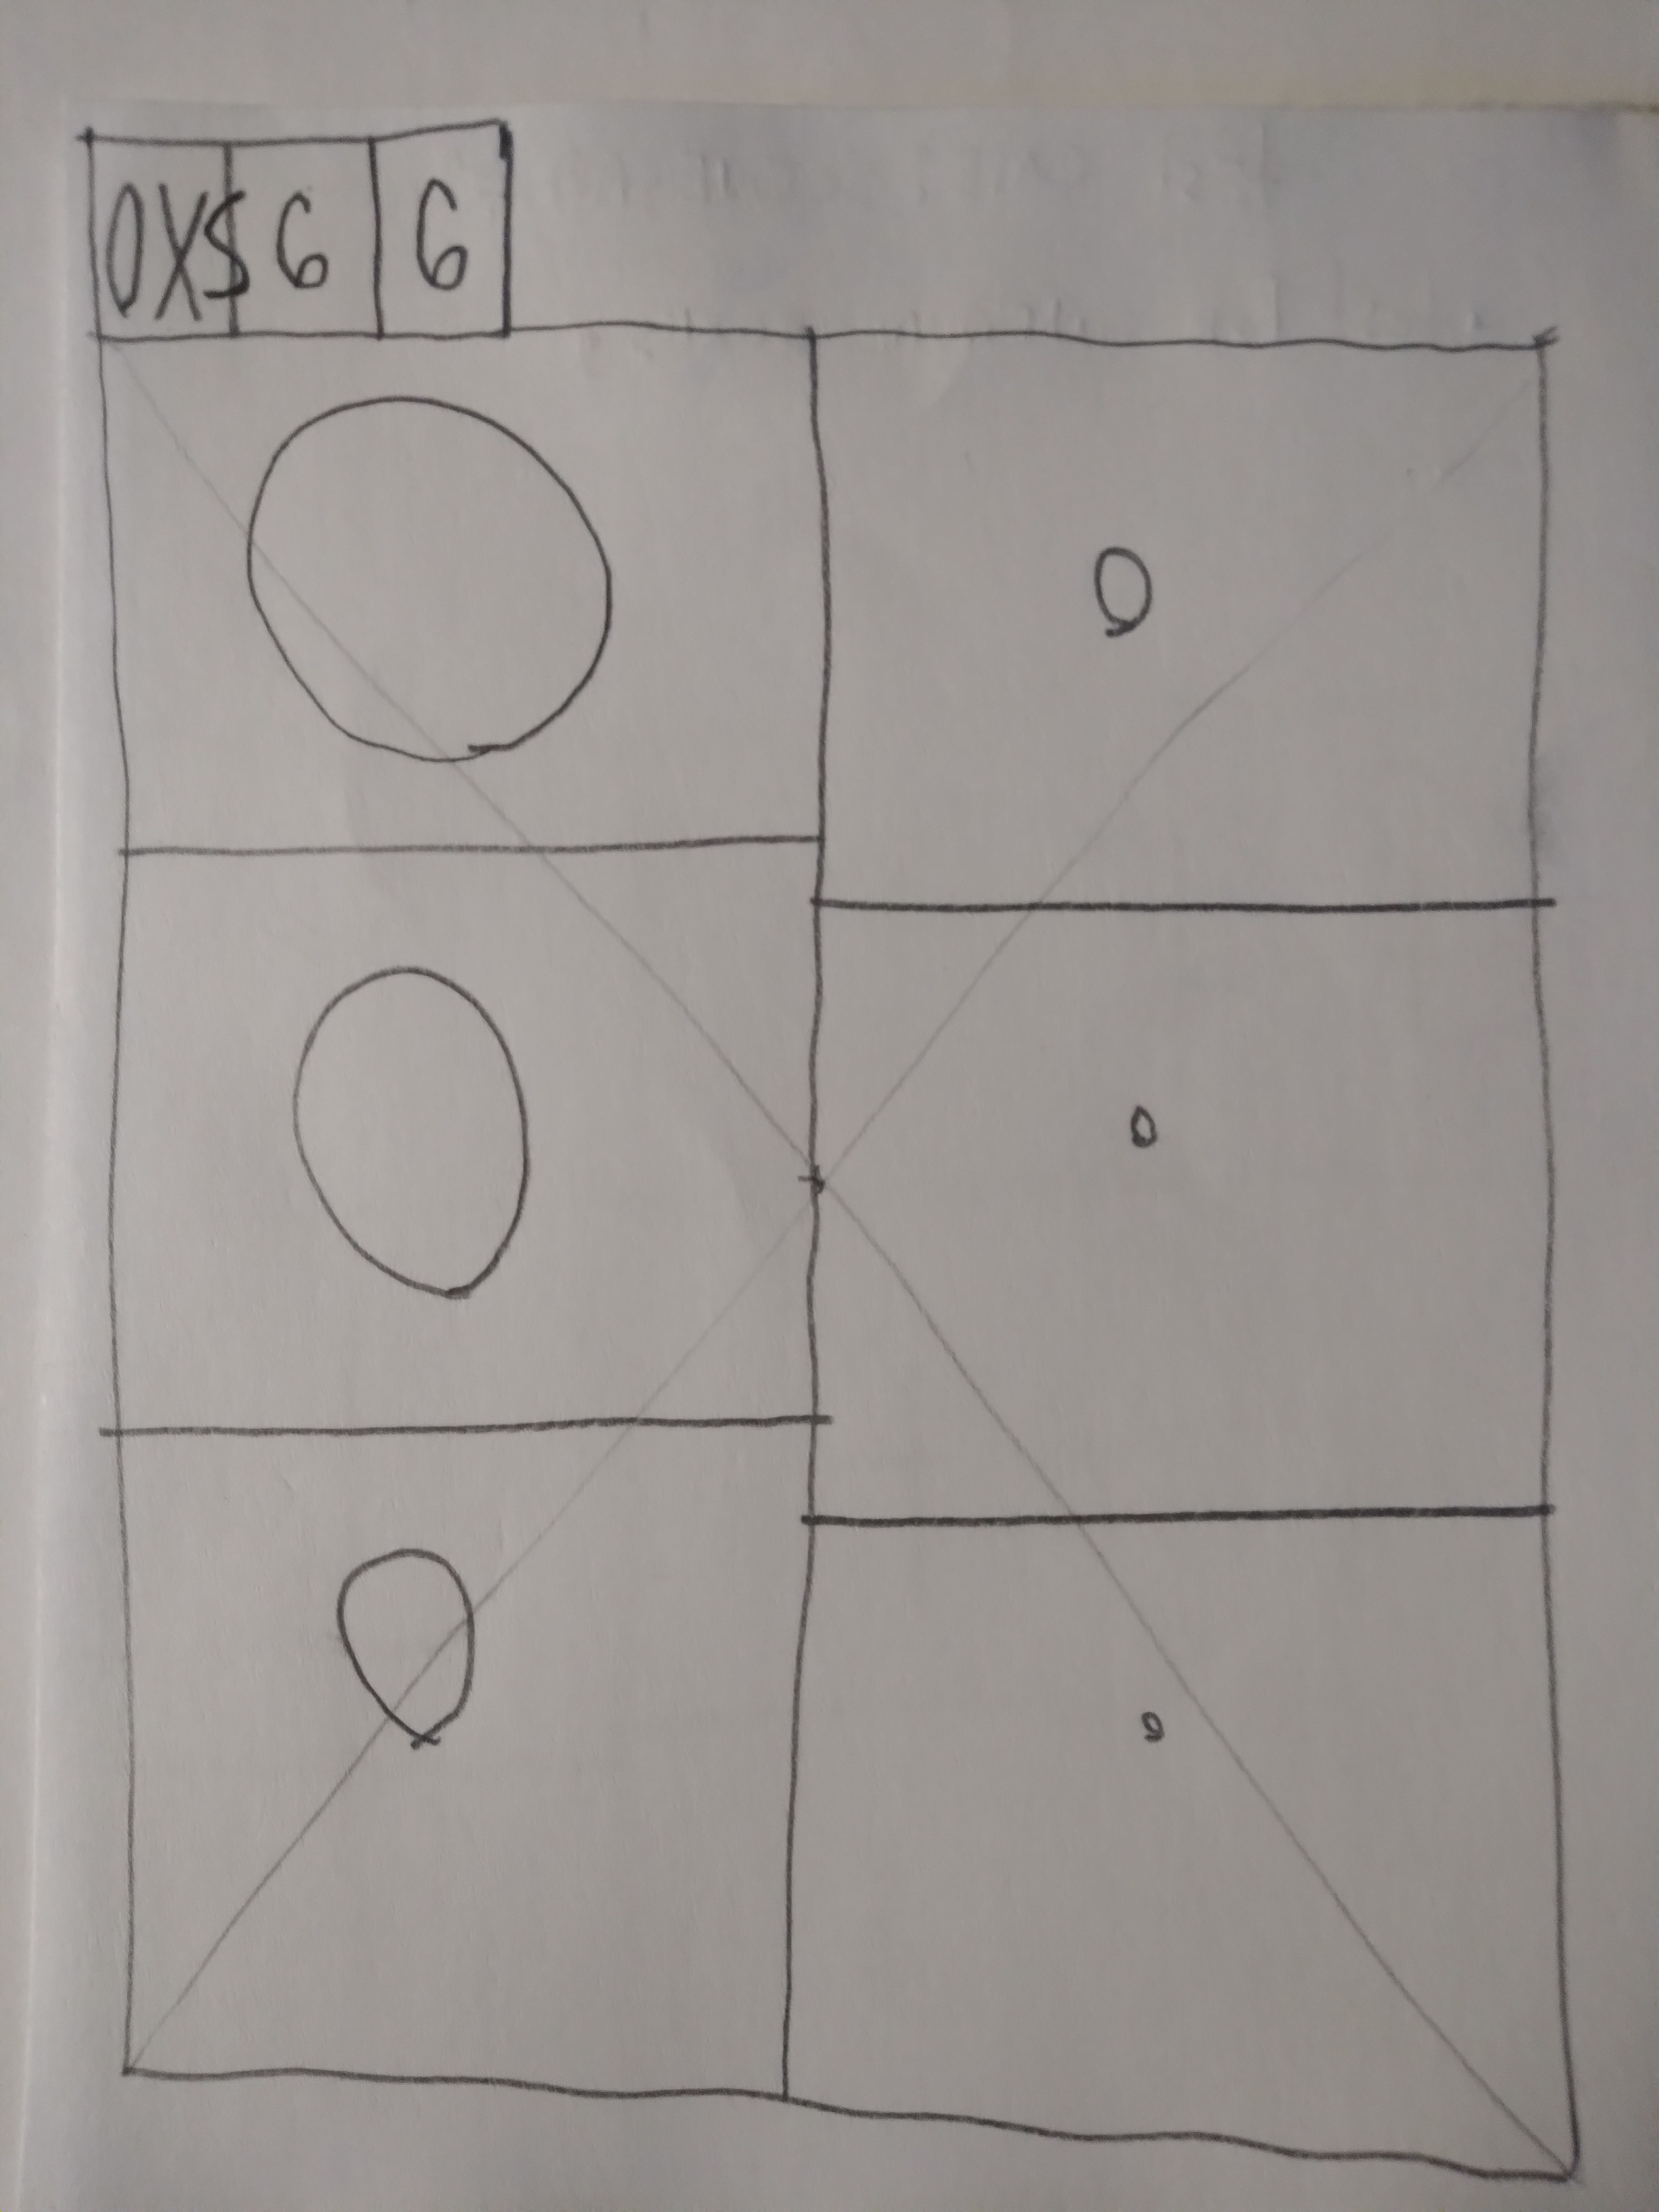 0X$ 6 6